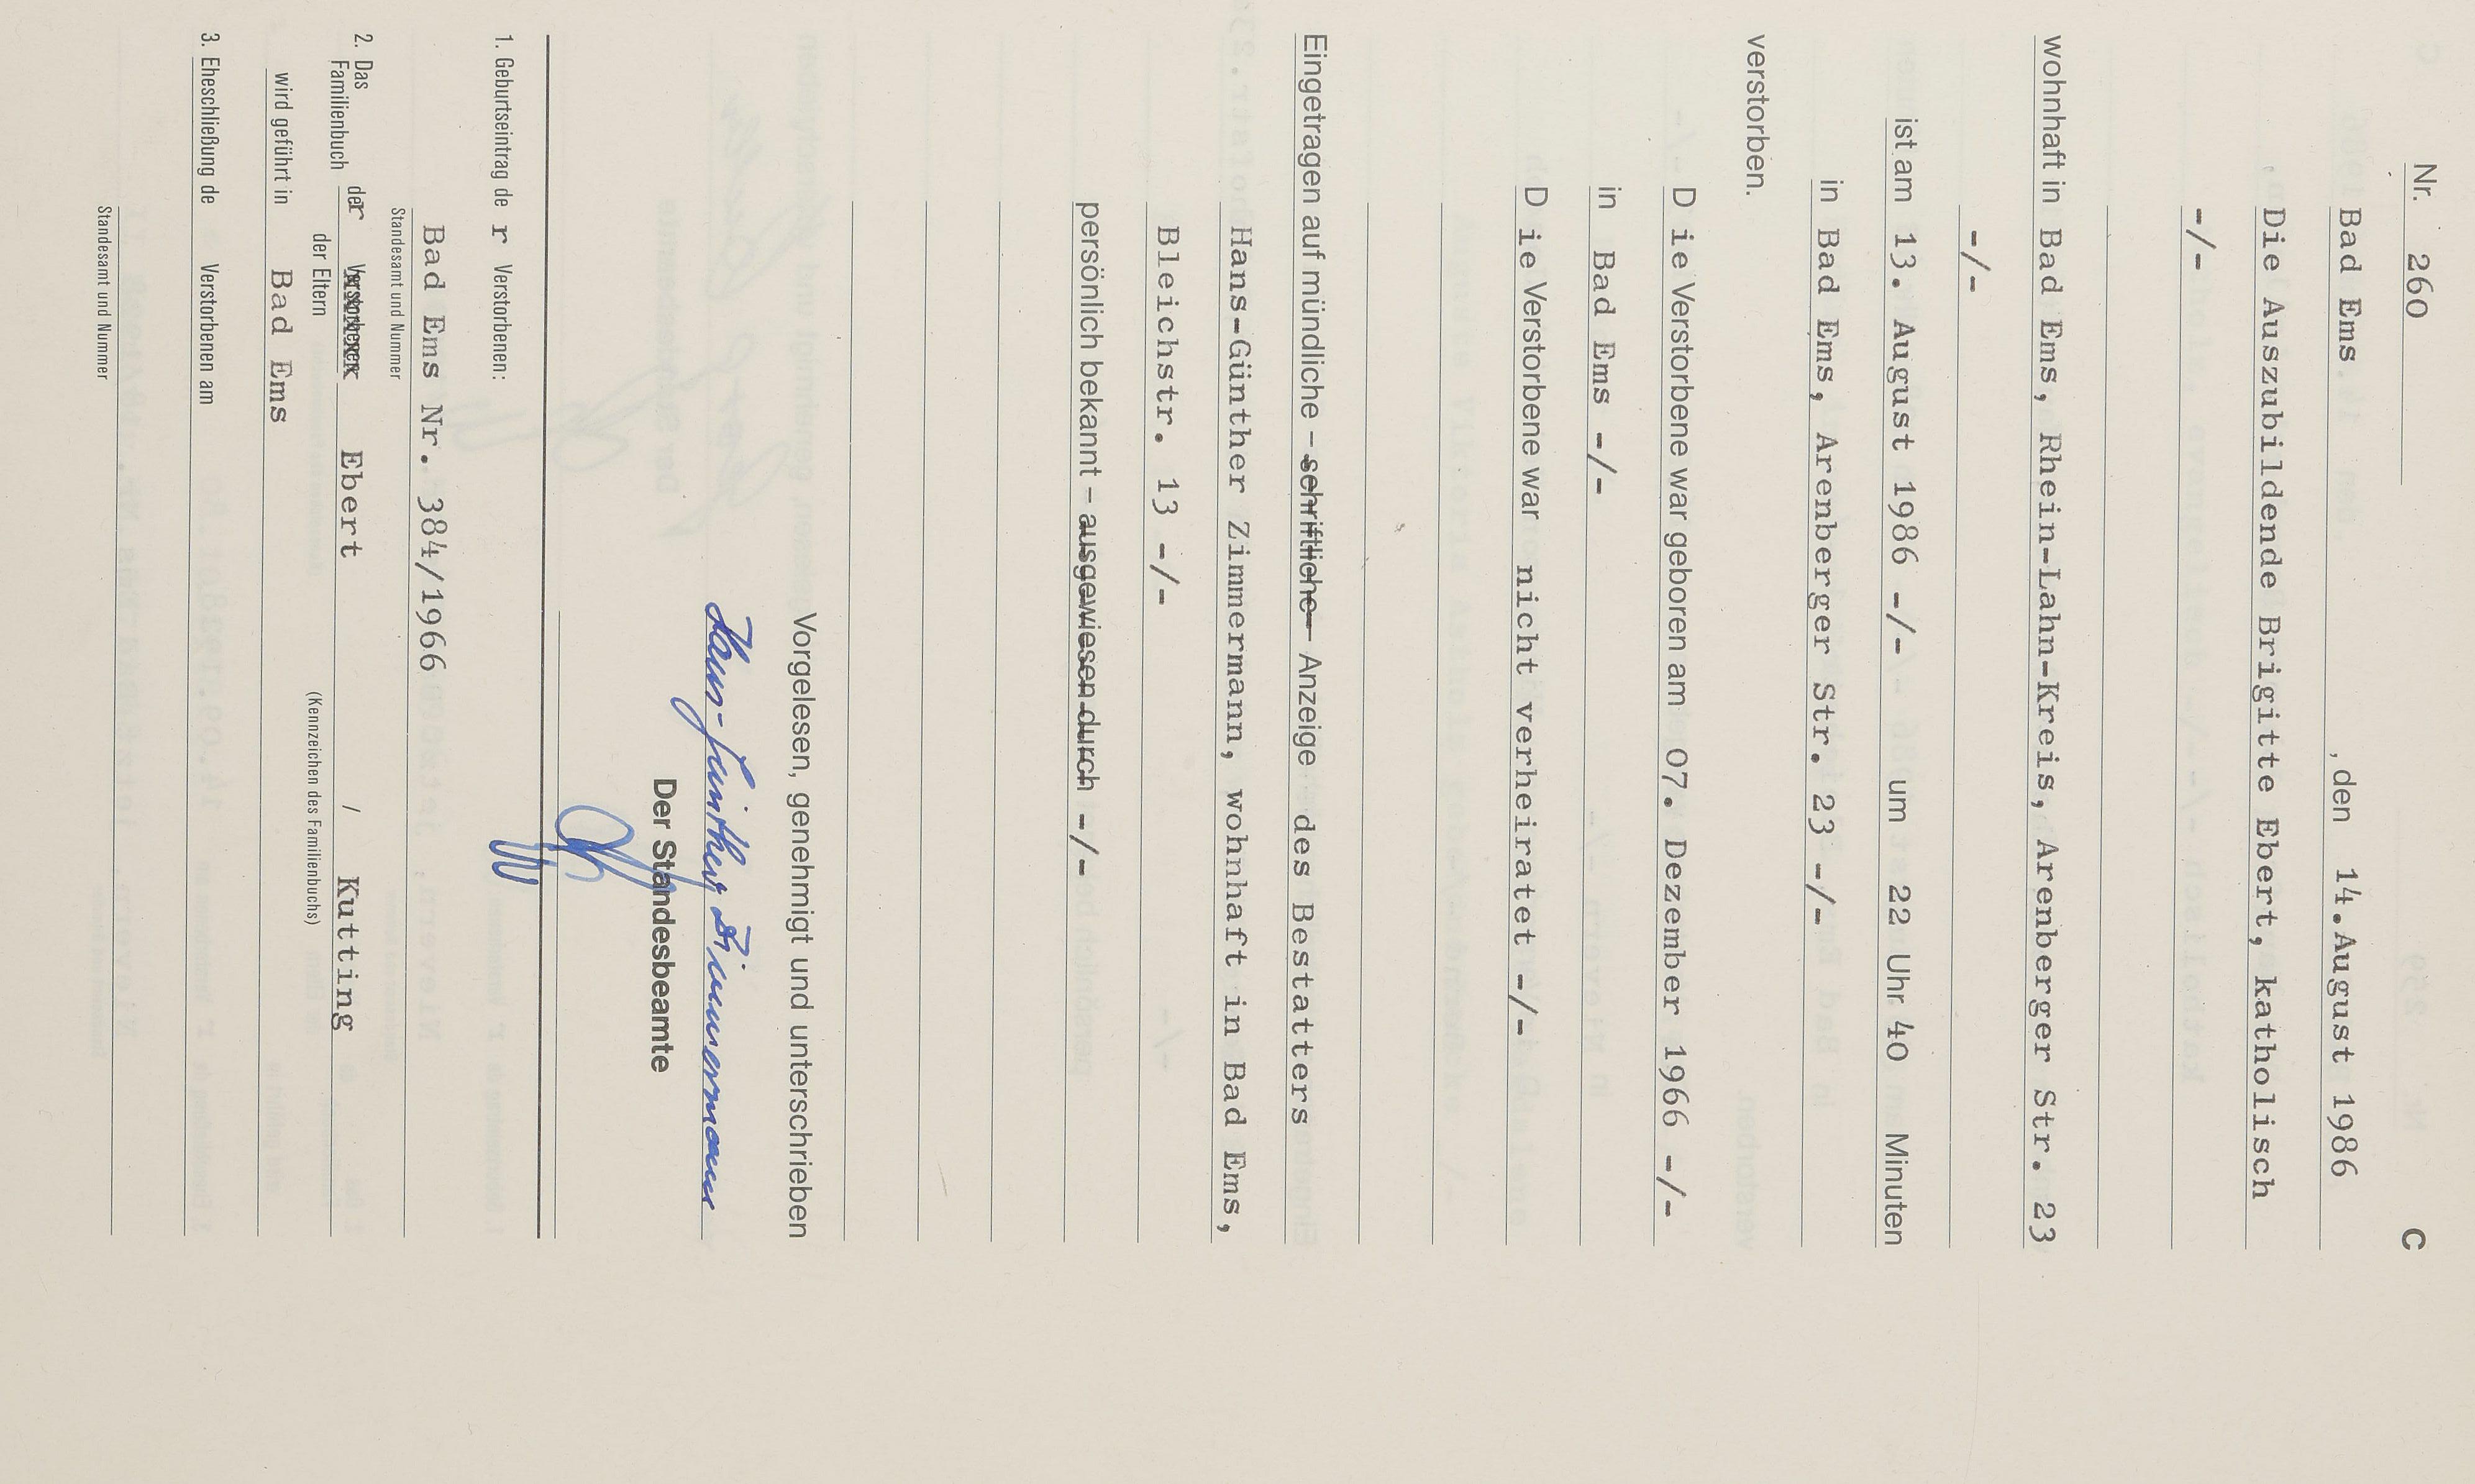 Nr. 260 C
Bad Ems , den 14.August 1986
Die Auszubildende Brigitte Ebert, katholisch
-/-
wohnhaft in Bad Ems, Rhein-Lahn-Kreis, Arenberger Str. 23
-/-
ist am 13. August 1986 -/- um 22 Uhr 40 Minuten
in Bad Ems, Arenberger Str. 23 -/-
verstorben.
D ie Verstorbene war geboren am 07. Dezember 1966 -/-
in Bad Ems -/-
D ie Verstorbene war nicht verheiratet -/-
Eingetragen auf mündliche – schriftliche – Anzeige des Bestatters
Hans-Günther Zimmermann, wohnhaft in Bad Ems,
Bleichstr. 13 -/-
persönlich bekannt – ausgewiesen durch -/-
Vorgelesen, genehmigt und unterschrieben
Hans-Günther Zimmermann
Der Standesbeamte
1. Geburtseintrag de r Verstorbenen:
Bad Ems Nr. 384/1966
Standesamt und Nummer
2. Das Familienbuch der Verstorbenen Ebert / Kutting
der Eltern (Kennzeichen des Familienbuchs)
wird geführt in Bad Ems
3. Eheschließung de Verstorbenen am
Standesamt und Nummer